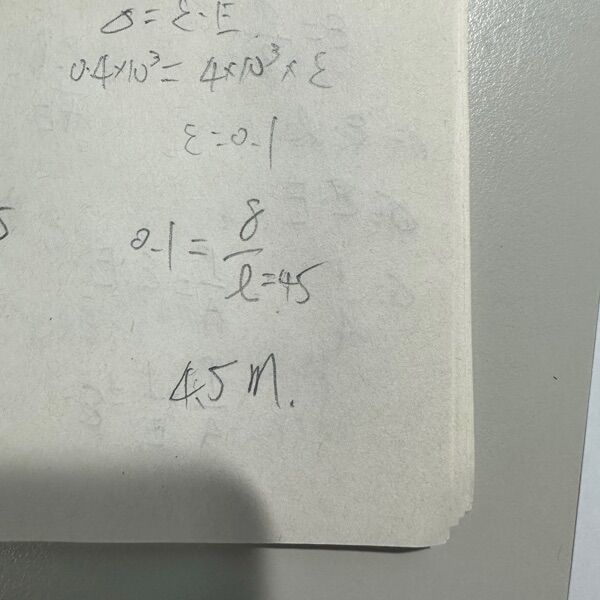 σ = ε·E
0.4×10³ = 4×10³ × ε
ε = 0.1
5
0.1 = δ / l = 45
4.5 m.